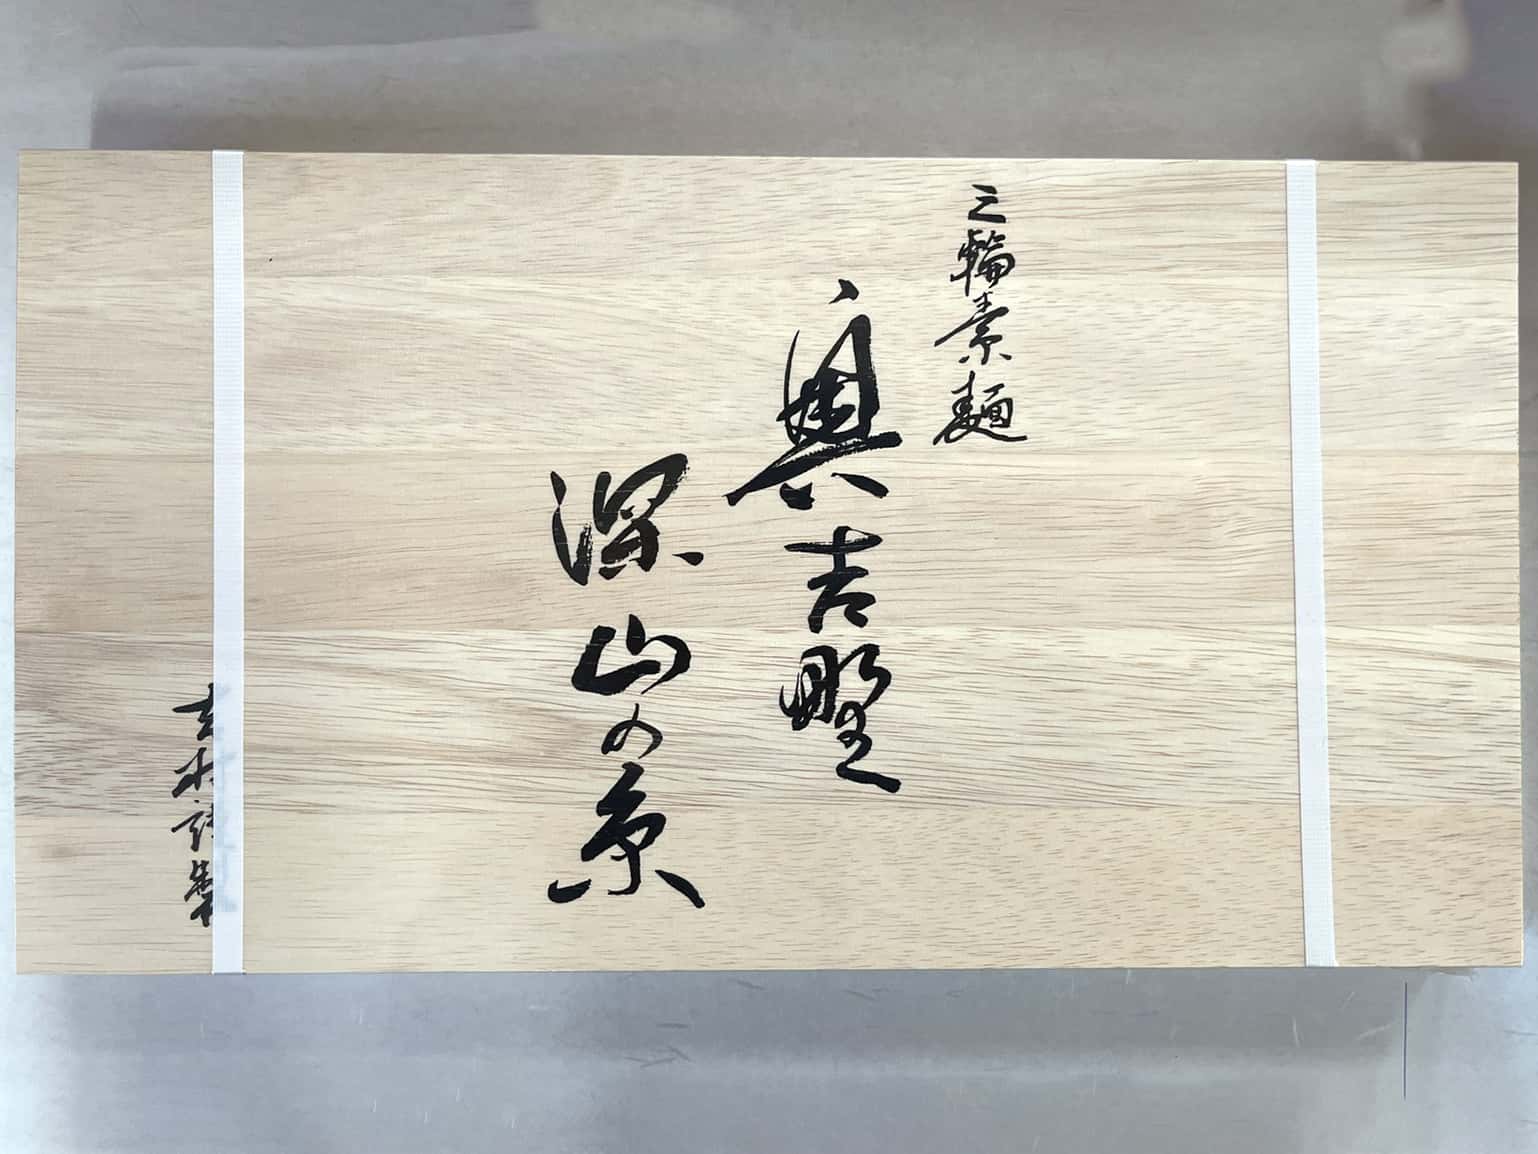 三輪素麺
奥吉野
深山の景
吉村謹製